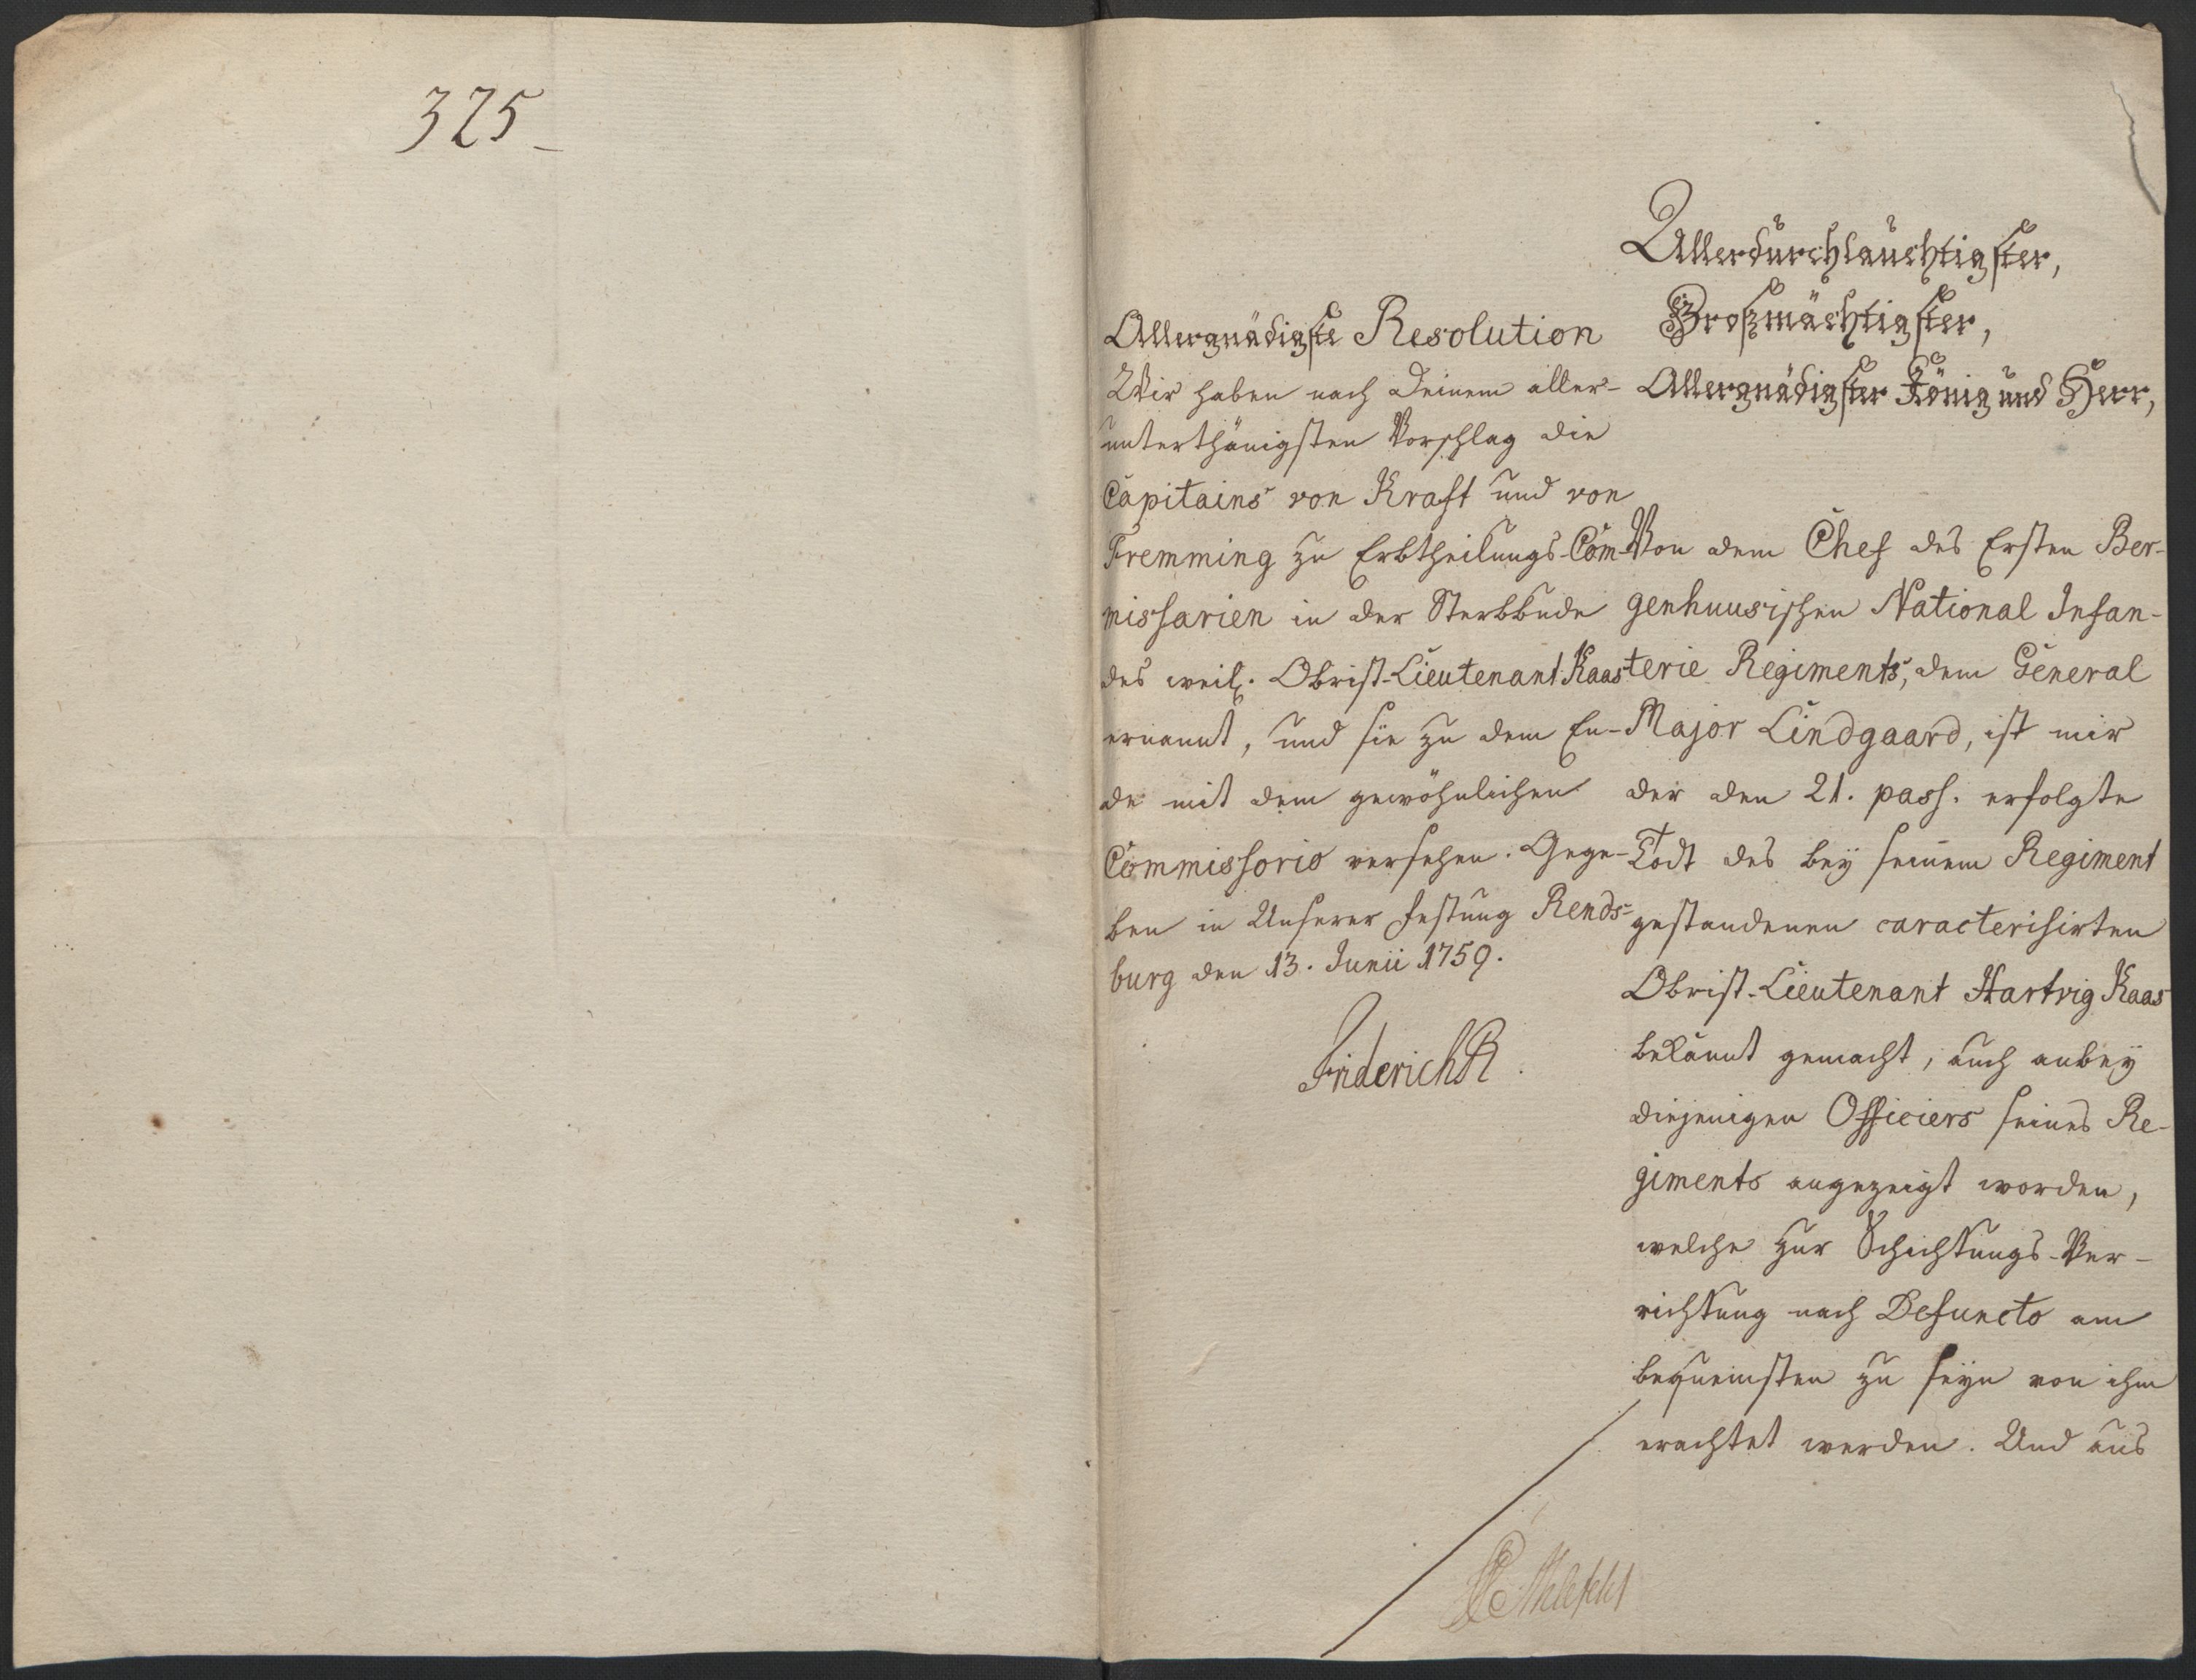 325
Allergnädigste Resolution
Wir haben nach Deinem aller-
unterthänigsten Vorschlag die
Capitains von Kraft und von
Fremming zu Erbtheilungs-Com-
missarien in der Sterbbude
des weil. Obrist-Lieutenant Kaas
ernannt, und sie zu dem En-
de mit dem gewöhnlichen
Commissorio versehen. Gege-
ben in Unserer Festung Rends-
burg den 13. Junii 1759.
Friderich R.
Allerdurchläuchtigster,
Großmächtigster,
Allergnädigster König und Herr,
Von dem Chef des Ersten Ber-
genhuusischen National Infan-
terie Regiments, dem General
Major Lindgaard, ist mir
der den 21. pass. erfolgte
Todt des bey seinem Regiment
gestandenen caracterisirten
Obrist-Lieutenant Hartvig Kaas
bekannt gemacht, auch anbey
diejenigen Officiers seines Re-
giments angezeigt worden,
welche zur Schichtungs-Ver-
richtung nach Defuncto am
bequemsten zu seyn von ihm
erachtet werden. Und aus